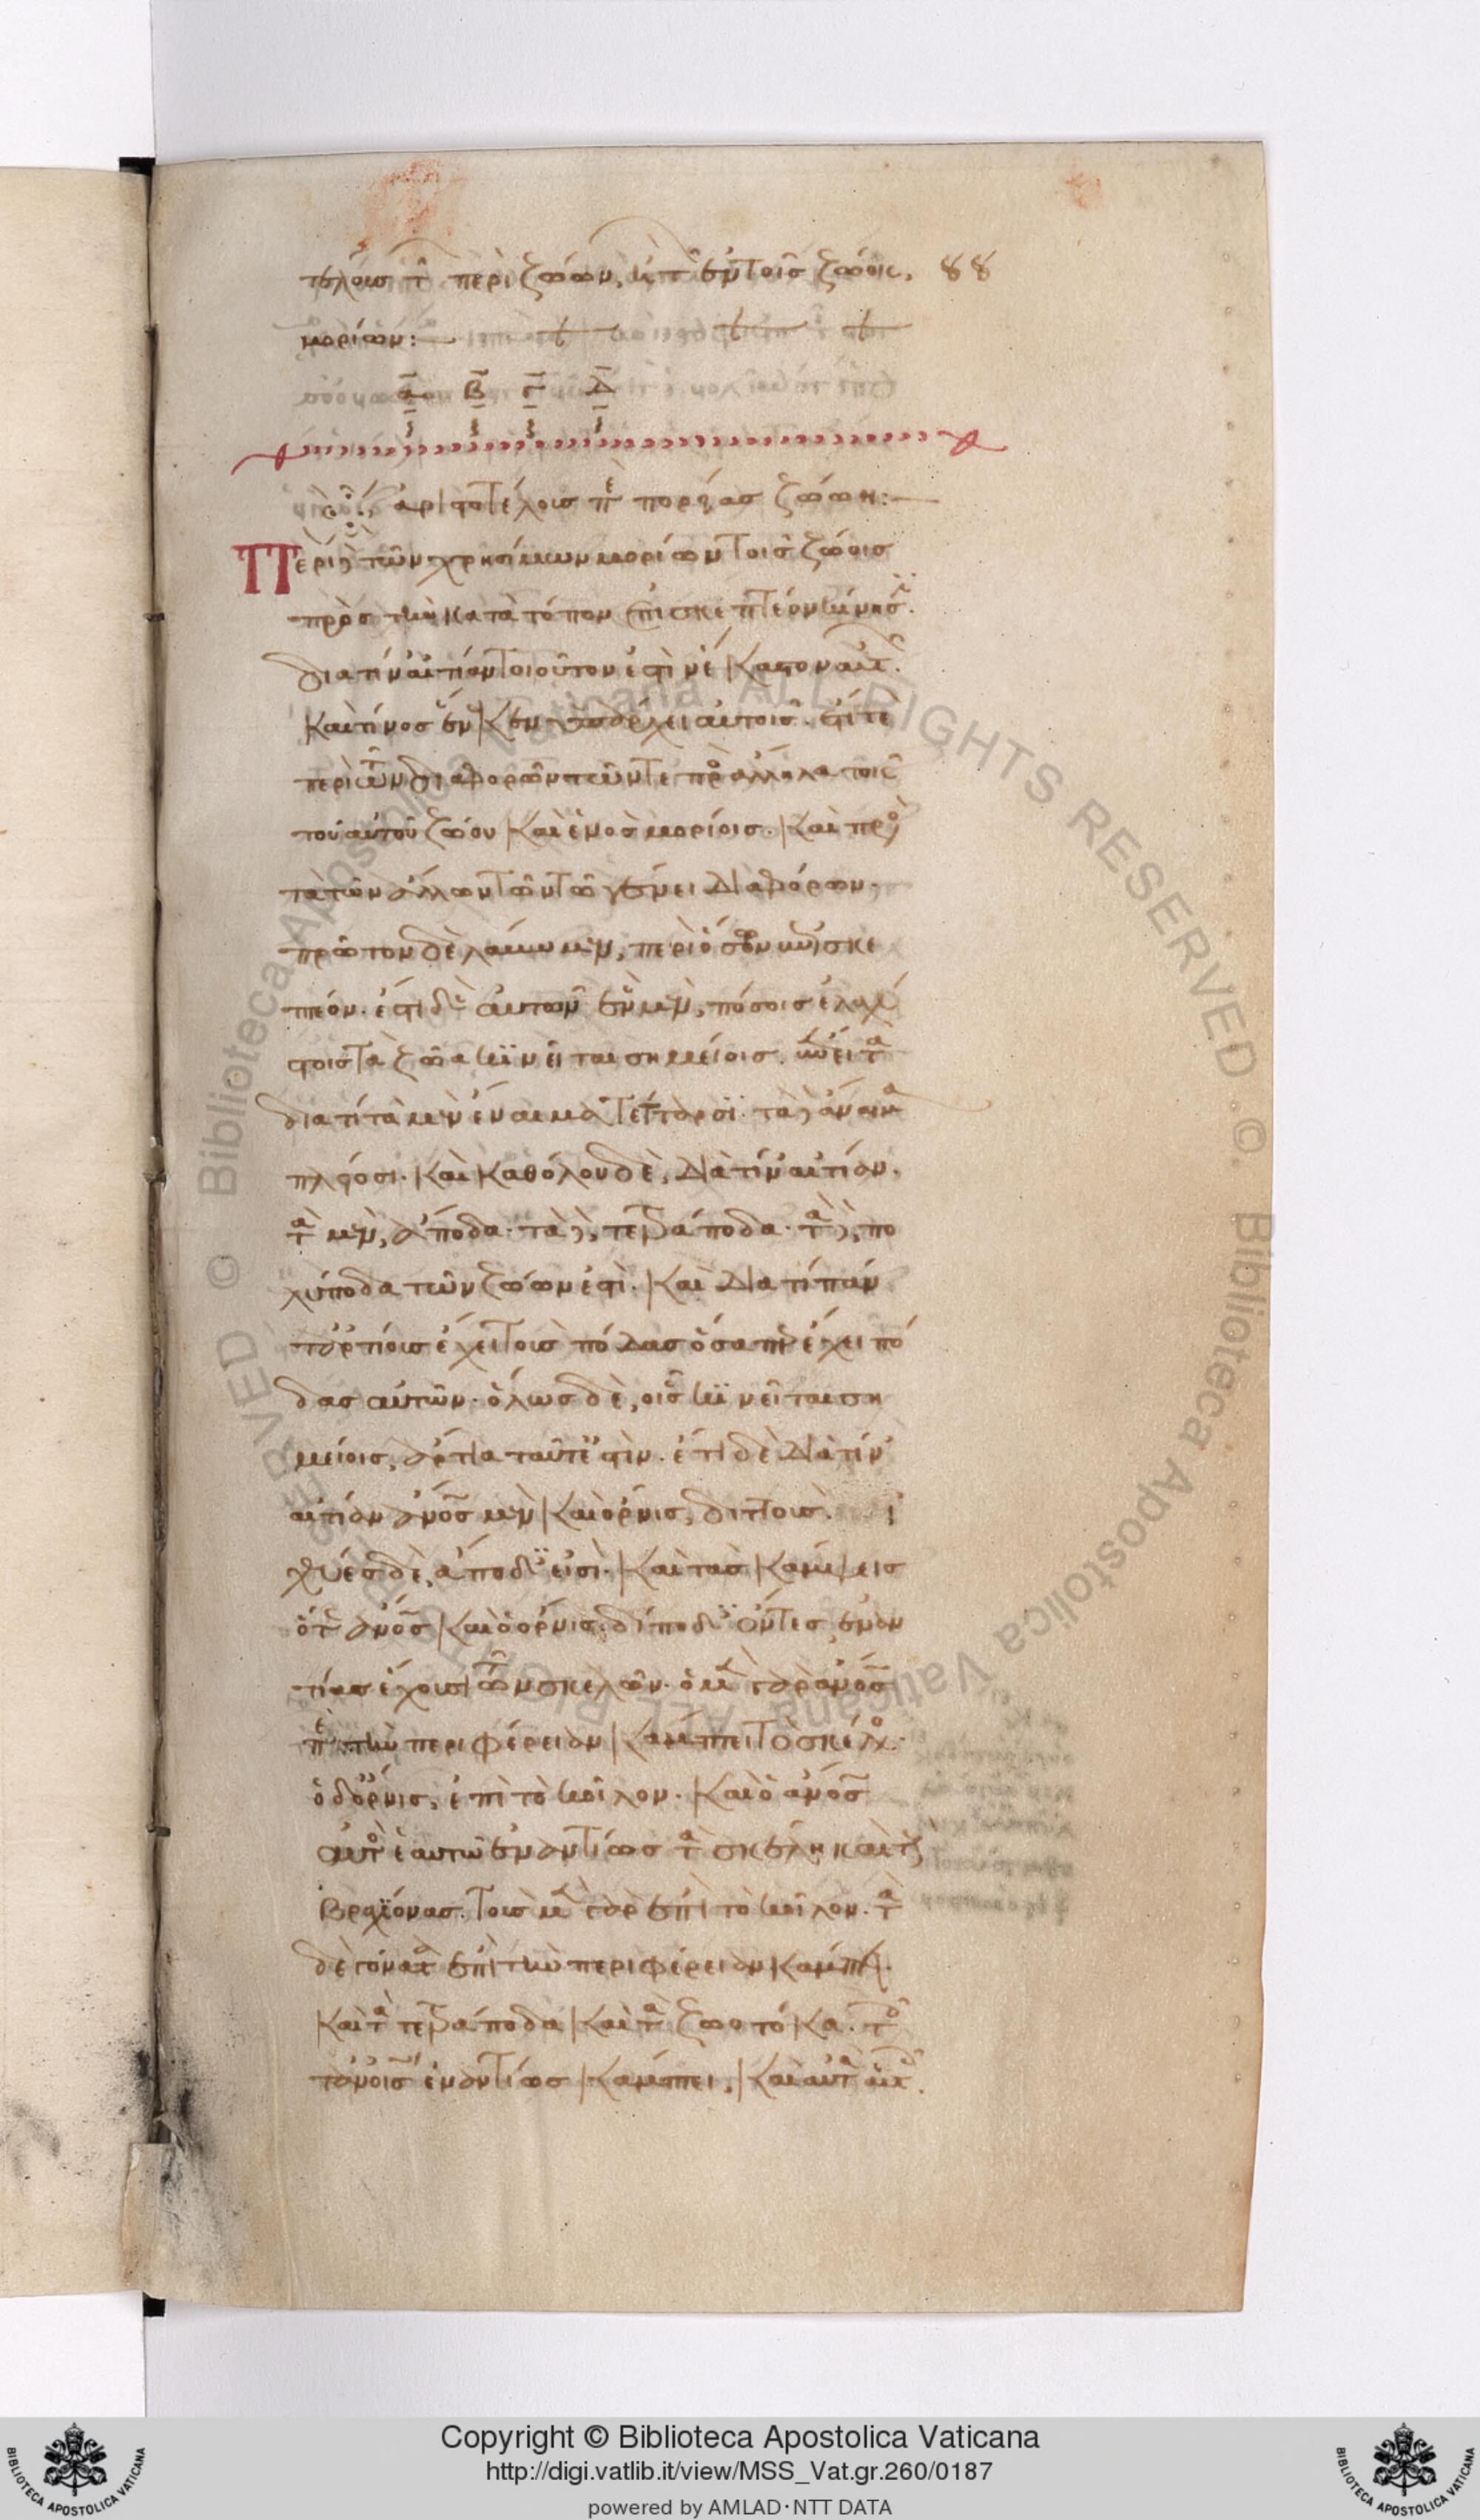 τέλους τῶν περὶ ζώων, καὶ τῶν ἐν τοῖς ζώοις, 88
μορίων:—
α Β Γ Δ
ἀριστοτέλους περὶ πορείας ζώων:—
Περὶ δὲ τῶν χρησίμων μορίων τοῖς ζώοις
πρὸς τὴν κατὰ τόπον ἐπισκεπτέον κίνησιν.
διὰ τίν αἰτίαν τοιοῦτον ἐστὶν ἕκαστον αὐτῶν.
καὶ τίνος ἕνεκεν ὑπάρχει αὐτοῖς. ἔτι τὲ
περὶ τῶν διαφορῶν τῶν τε πρὸς ἄλληλα τοῖς
τοῦ αὐτοῦ ζώου καὶ ἑνὸς μορίοις. καὶ πρὸς
τὰ τῶν ἄλλων τῶν τῶ γένει διαφόρων.
πρῶτον δὲ λάβωμεν, περὶ ὅσων ἐπισκε
πτέον. ἔστι δὲ αὐτῶν ἓν μὲν, πόσοις ἐλαχί
στοις τὰ ζῶα κινεῖται σημείοις. ἔπειτα
διατί τὰ μὲν ἔναιμα τέτταρσι. τὰ δὲ ἄναιμα
πλείοσι. καὶ καθόλου δὲ, διὰ τίν αἰτίαν.
τὰ μὲν, ἄποδα. τὰ δὲ, τετράποδα. τὰ δὲ, πο
λύποδα τῶν ζώων ἐστὶ. καὶ διατί πάν
τα ἀρτίους ἔχει τοὺς πόδας ὅσα περ ἔχει πό
δας αὐτῶν. ὅλως δὲ, οἷς κινεῖται ση
μείοις, ἄρτια ταῦτ' ἐστὶν. ἔτι δὲ διὰ τίν
αἰτίαν ἄνθρωπος μὲν καὶ ὄρνις, δίπους. ἰ
χθύες δὲ, ἄποδες εἰσὶ. καὶ τὰς κάμψεις
ὅτε ἄνθρωπος καὶ ὁ ὄρνις δίποδες ὄντες, ἐναν
τίας ἔχουσι τῶν σκελῶν. ὁ μὲν γὰρ ἄνθρωπος
ἐπὶ τὴν περιφέρειαν κάμπτει τὸ σκέλος.
ὁ δ' ὄρνις, ἐπὶ τὸ κοῖλον. καὶ ὁ ἄνθρωπος
αὐτὸς ἑαυτῶ ἐναντίως τὰ σκέλη καὶ τοὺς
βραχίονας. τοὺς μὲν γὰρ ἐπὶ τὸ κοῖλον. τὰ
δὲ γόνατα ἐπὶ τὴν περιφέρειαν κάμπτει.
καὶ τὰ τετράποδα καὶ τὰ ζωοτόκα. τοῖς
τ' ἀνθρώποις ἐναντίως κάμπτει, καὶ αὐτὰ αὑτοῖς.